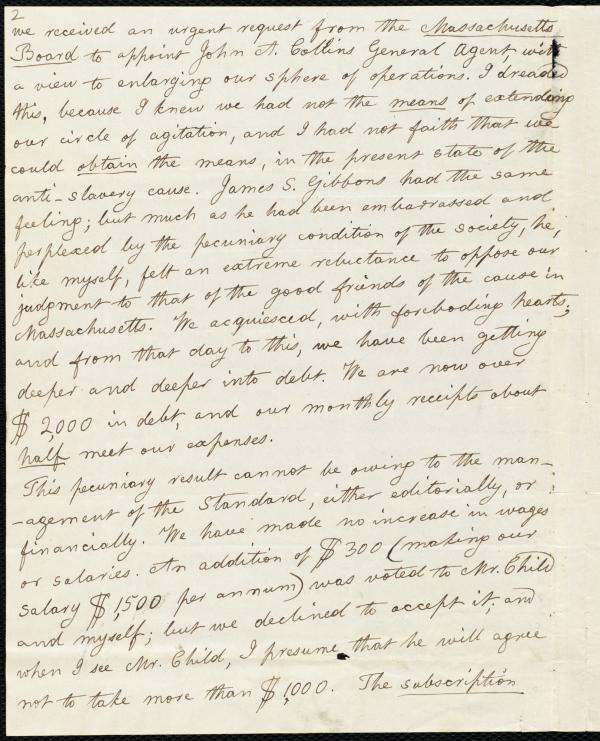 2
we received an urgent request from the Massachusetts
Board to appoint John A. Collins General Agent, with
a view to enlarging our sphere of operations. I dreaded
this, because I knew we had not the means of extending
our circle of agitation, and I had not faith that we
could obtain the means, in the present state of the
anti-slavery cause. James S. Gibbons had the same
feeling; but much as he had been embarrassed and
perplexed by the pecuniary condition of the society, he,
like myself, felt an extreme reluctance to oppose our
judgment to that of the good friends of the cause in
Massachusetts. We acquiesced, with foreboding hearts;
and from that day to this, we have been getting
deeper and deeper into debt. We are now over
$2,000 in debt, and our monthly receipts about
half meet our expenses.
This pecuniary result cannot be owing to the man-
-agement of the Standard, either editorially, or
financially. We have made no increase in wages
or salaries. An addition of $300 (making our
salary $1,500 per annum) was voted to Mr. Child
and myself; but we declined to accept it; and
when I see Mr. Child, I presume that he will agree
not to take more than $1,000. The subscription